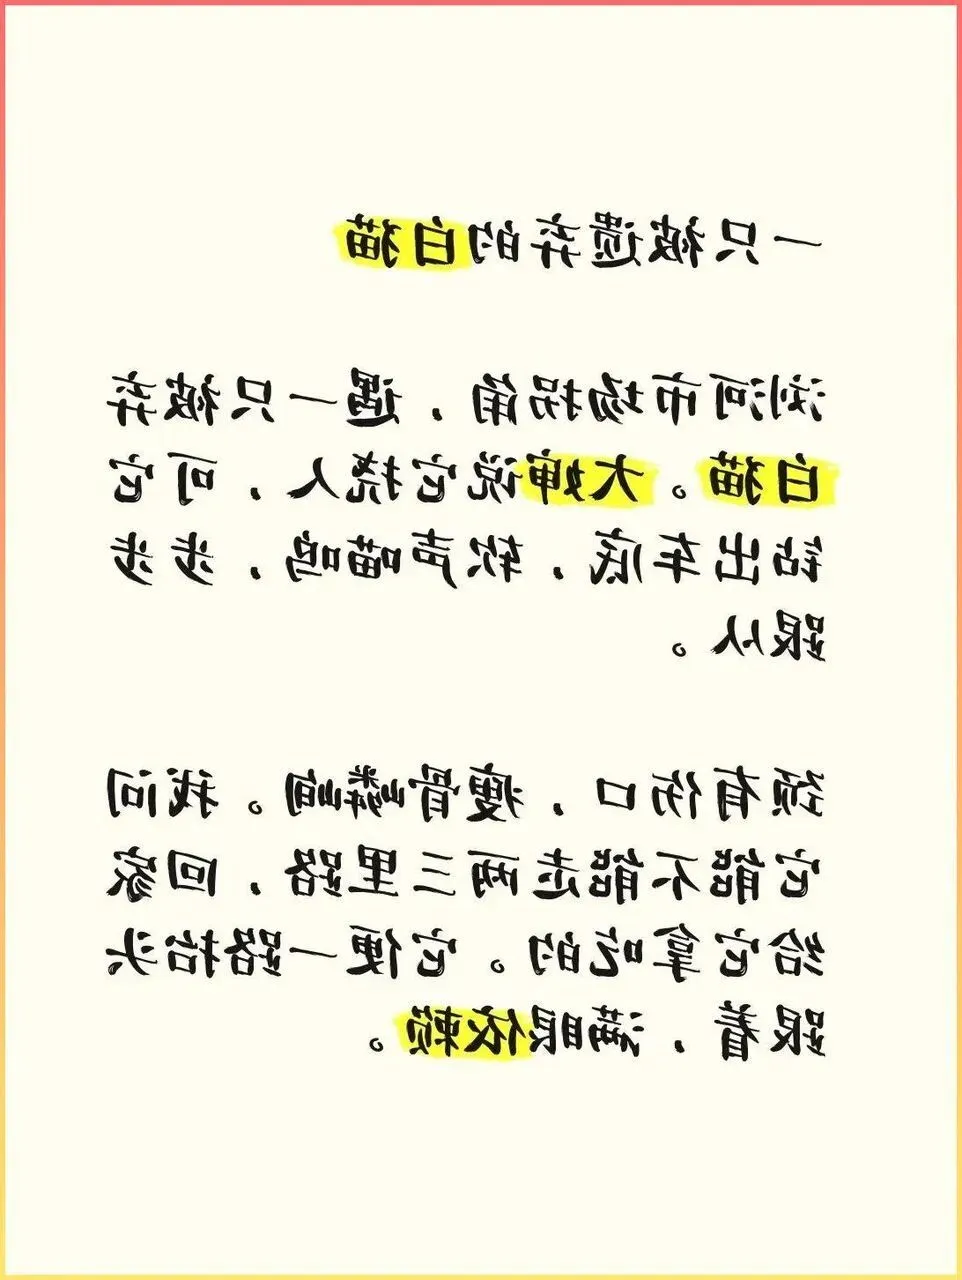 一只被遗弃的白猫
浏河市场拐角，遇一只被弃
白猫。大婶说它挠人，可它
钻出车底，软声喵呜，步步
跟从。
颈有伤口，瘦骨嶙峋。我问
它能不能走两三里路，回家
给它拿吃的。它便一路抬头
跟着，满眼依赖。